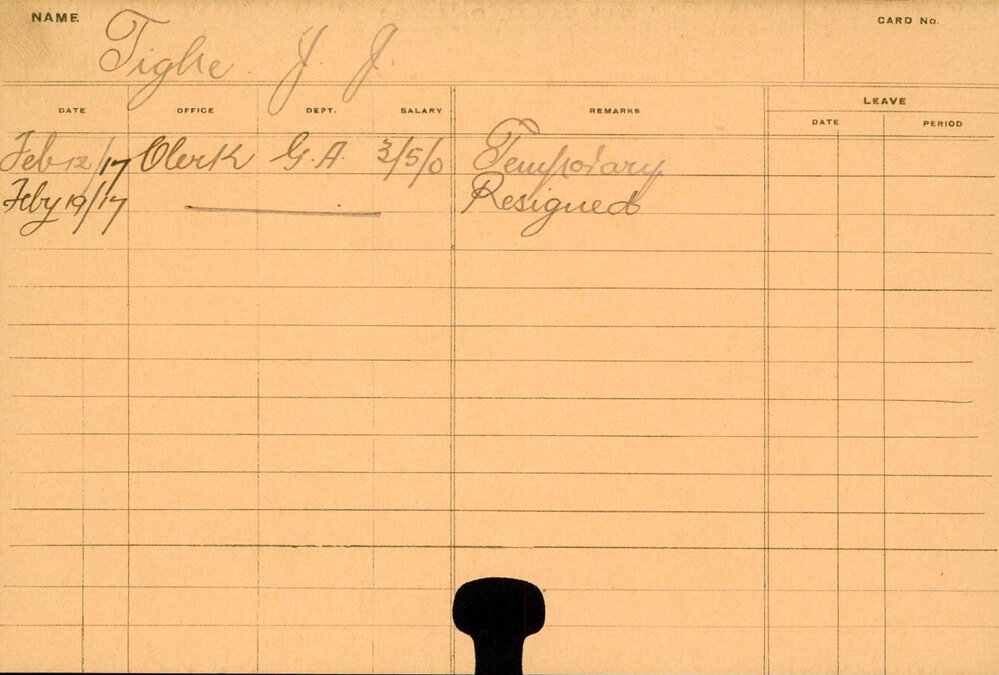 NAME. Tighe J. J. CARD No.
DATE OFFICE DEPT. SALARY REMARKS LEAVE
DATE PERIOD
Feb 12/17 Clerk G.A. 3/5/0 Temporary
Feby 19/17 Resigned